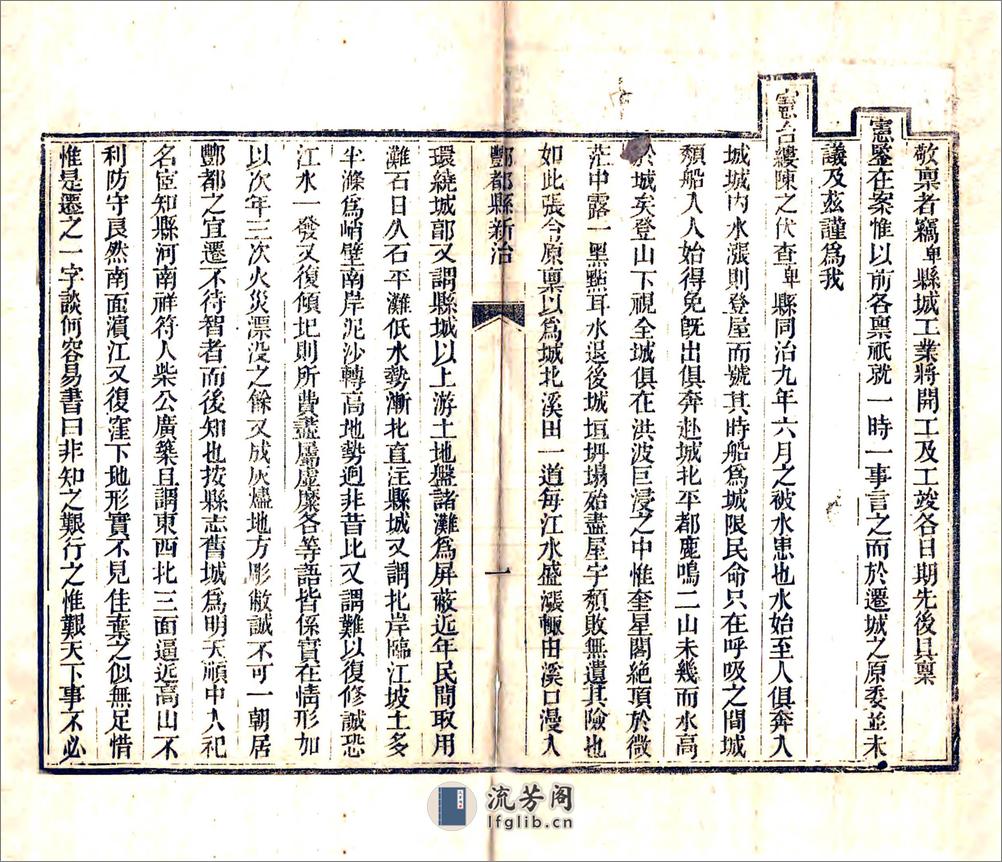 敬禀者竊卑縣城工業將開工及工竣各日期先後具禀
憲鑒在案惟以前各禀祇就一時一事言之而於遷城之原委並未
議及玆謹爲我
憲台縷陳之伏查卑縣同治九年六月之被水患也水始至人俱奔入
城城内水漲則登屋而號其時船爲城限民命只在呼吸之間城
頹船入人始得免旣出俱奔赴城北平都鹿鳴二山未幾而水高
於城矣登山下視全城俱在洪波巨浸之中惟奎星閣絶頂於微
茫中露一黑點耳水退後城垣坍塌殆盡屋宇頹敗無遺其險也
如此張令原禀以爲城北溪田一道每江水盛漲輙由溪口漫入
酆都縣新治
一
環繞城郭又謂縣城以上游土地盤諸灘爲屏蔽近年民間取用
灘石日久石平灘低水勢漸北直注縣城又謂北岸臨江坡土多
半滌爲峭壁南岸泥沙轉高地勢逈非昔比又謂難以復修誠恐
江水一發又復傾圮則所費盡屬虛糜各等語皆係實在情形加
以次年三次火災漂没之餘又成灰燼地方彫敝誠不可一朝居
酆都之宜遷不待智者而後知也按縣志舊城爲明天順中入祀
名宦知縣河南祥符人柴公廣築且謂東西北三面逼近高山不
利防守良然南面濱江又復窪下地形實不見佳棄之似無足惜
惟是遷之一字談何容易書曰非知之艱行之惟艱天下事不必
流芳阁
lfglib.cn